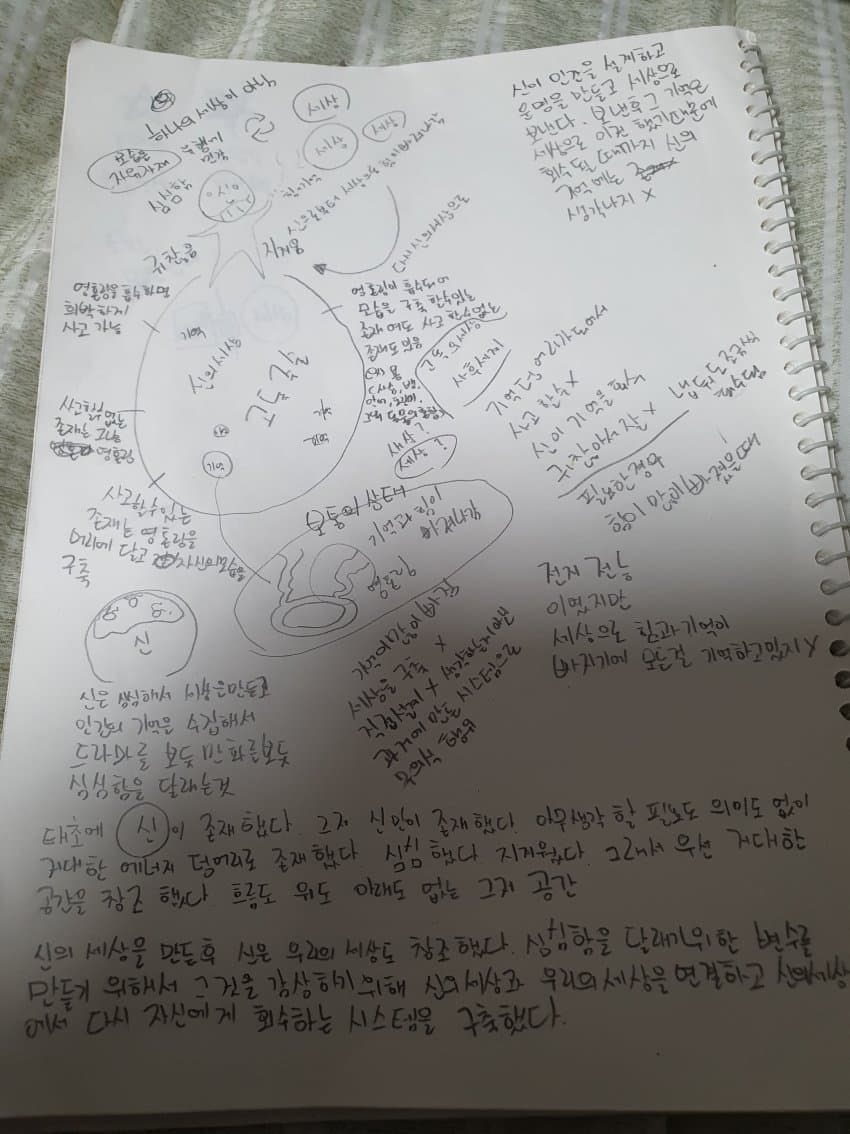 하나의 세상이 아님
세상
세상
세상
모습은
자유자재
심심함
귀찮음
지겨움
신으로부터 세상으로 힘이 빠져나감
다시 신의 세상으로
신이 인간을 설계하고
운명을 만들고 세상으로
보낸다. 보낸후 그 기억은
세상으로 이전 했기때문에
회수될 때까지 신의
기억에는
생각나지 X
영혼링을 흡수하면
희박하게
사고 가능
기억
신의 세상
고동 물질
기억
기억
기억
영혼링이 흡수되어
모습을 구축 할수있는
존재 여도 사고 할수없는
존재도 있음
사후세계
세상?
세상?
사고할수 없는
존재는 그냥
영혼링
사고할수있는
존재는 영혼링을
머리에 달고 자신의모습을
구축
기억덩어리가 되어서
사고 할수 X
신이 기억을 회수
귀찮아서 잘 X
냅둬도 자동
회수됨
필요한경우
힘이 많이 빠졌을때
보통의 상태
기억과 힘이
빠져나감
영혼링
신
신은 심심해서 세상을만들고
인간의 기억을 수집해서
드라마를 보듯 만화를보듯
심심함을 달래는것
기억이 많이 빠짐
세상을 구축 X
직접설계 X 생각하는게 아닌
과거에 만든 시스템으로
무의식 행위
전지 전능
이였지만
세상으로 힘과 기억이
빠지기에 모든걸 기억하고있지 X
태초에 신이 존재 했다. 그저 신만이 존재했다. 아무생각 할 필요도 의미도 없이
거대한 에너지 덩어리로 존재 했다. 심심했다 지겨웠다. 그래서 우선 거대한
공간을 창조 했다. 흐름도 위도 아래도 없는 그저 공간
신의 세상을 만든후 신은 우리의 세상도 창조했다. 심심함을 달래기위한 변수를
만들기 위해서 그것을 감상하기 위해 신의세상과 우리의 세상을 연결하고 신의세상
에서 다시 자신에게 회수하는 시스템을 구축했다.